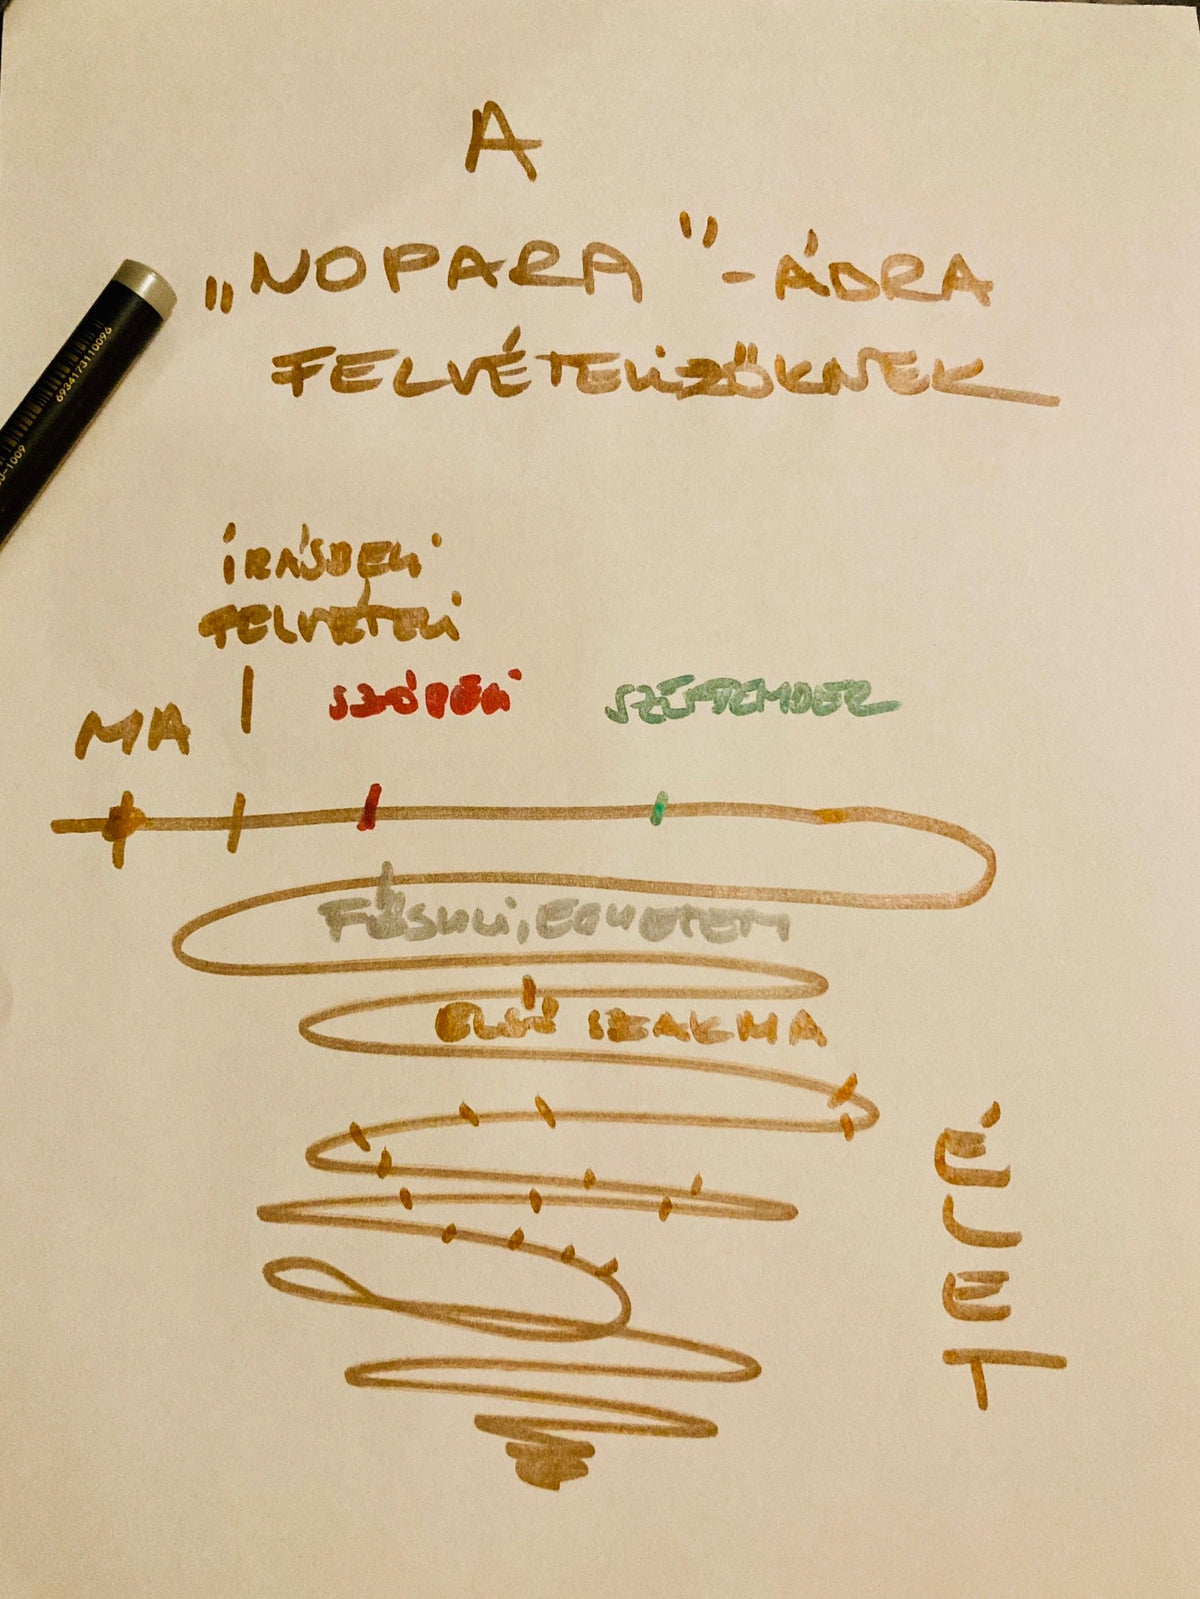 A
„NOPARA"-ÁDRA
FELVÉTELIZŐKNEK
ÍRÁSBELI
FELVÉTELI
MA
SZÓBELI
SZEPTEMBER
FŐSULI, EGYETEM
ELSŐ SZAKMA
ÉLET
6934173110096
-1009